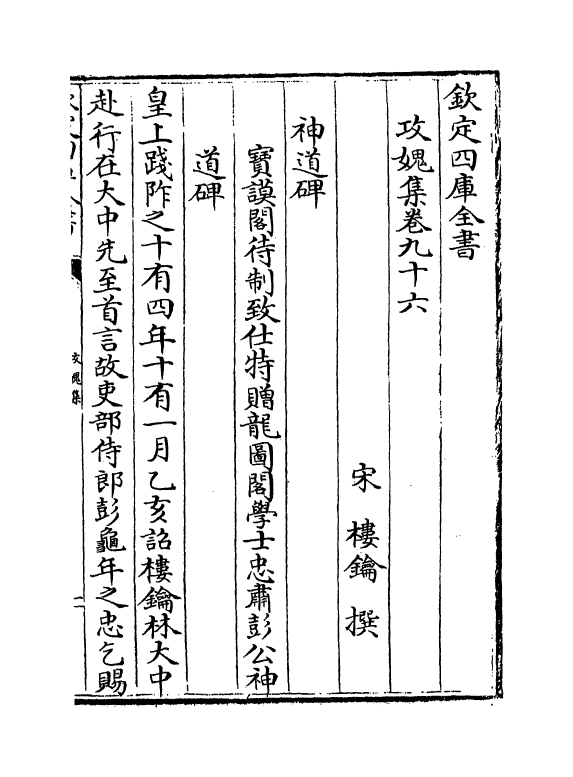 欽定四庫全書
攻媿集卷九十六
宋 樓鑰 撰
神道碑
寶謨閣待制致仕特贈龍圖閣學士忠肅彭公神
道碑
皇上踐阼之十有四年十有一月乙亥詔樓鑰林大中
赴行在大中先至首言故吏部侍郎彭龜年之忠乞賜
攻媿集